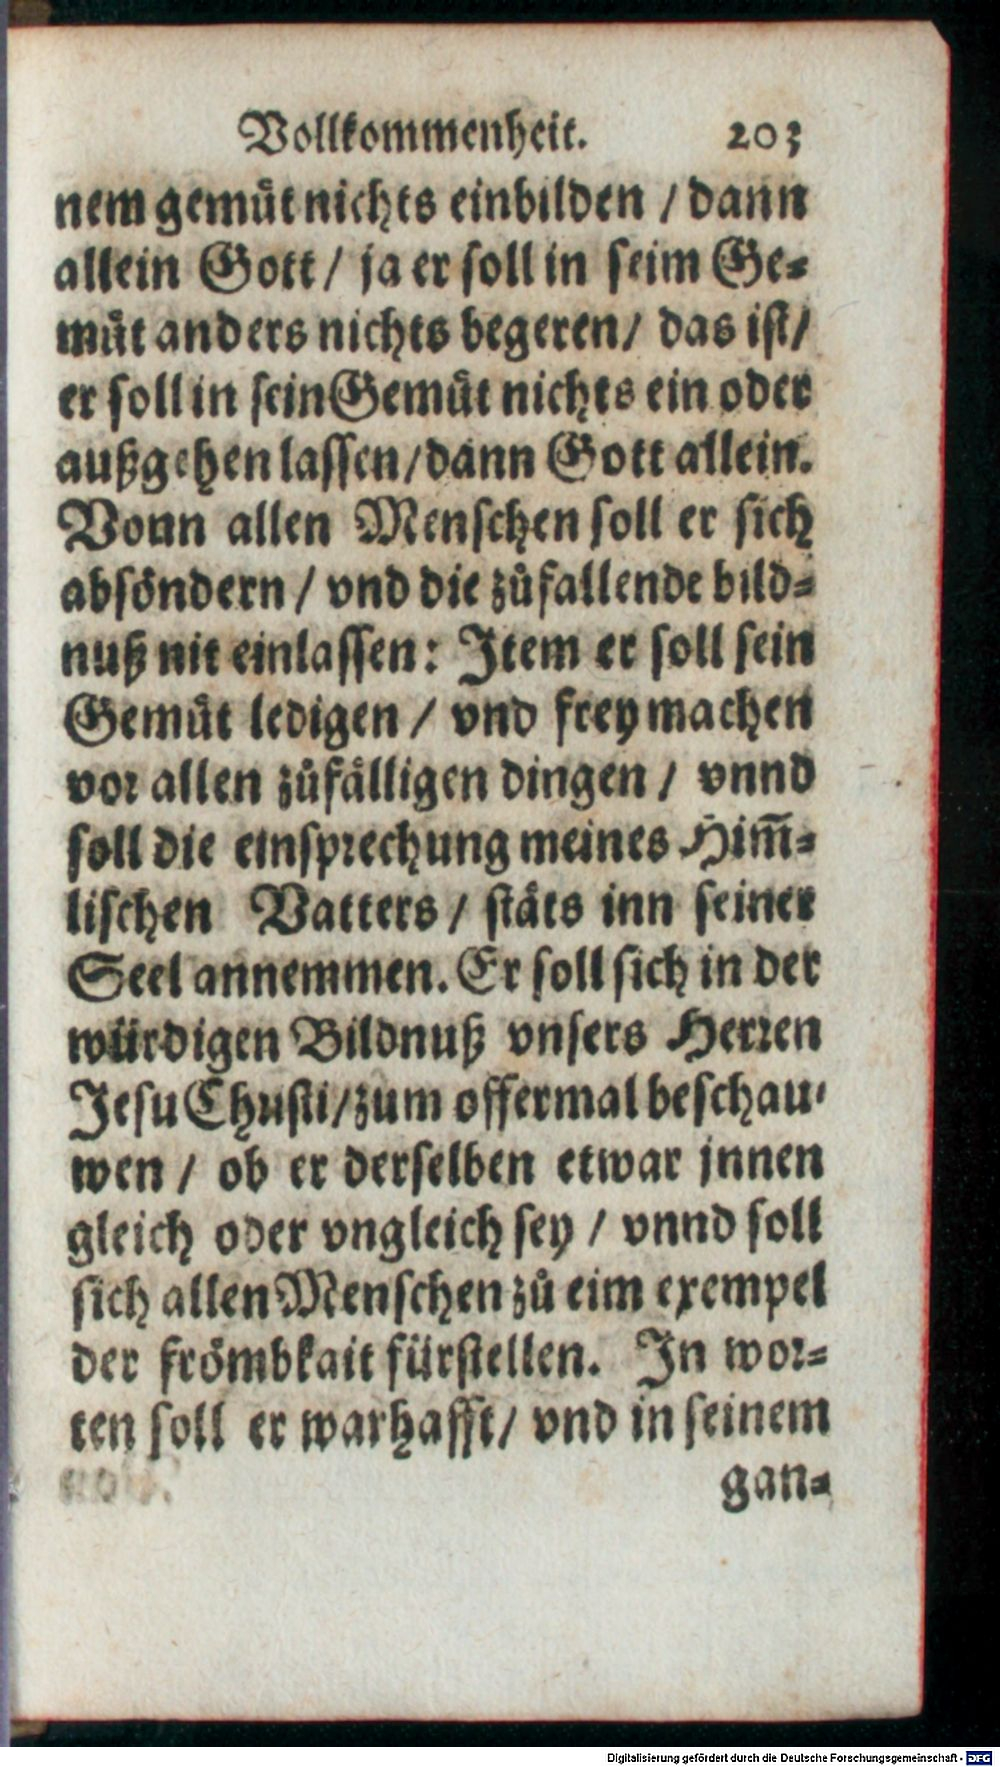 Vollkommenheit. 203
nem gemuͤt nichts einbilden / dann
allein Gott / ja er soll in seim Ge-
muͤt anders nichts begeren / das ist /
er soll in sein Gemuͤt nichts ein oder
außgehen lassen / dann Gott allein.
Vonn allen Menschen soll er sich
absoͤndern / vnd die zůfallende bild-
nuß nit einlassen: Item er soll sein
Gemuͤt ledigen / vnd frey machen
vor allen zůfaͤlligen dingen / vnnd
soll die einsprechung meines Him̃-
lischen Vatters / staͤts inn seiner
Seel annemmen. Er soll sich in der
wuͤrdigen Bildnuß vnsers Herren
Jesu Christi / zum offermal beschau-
wen / ob er derselben etwar jnnen
gleich oder vngleich sey / vnnd soll
sich allen Menschen zů eim exempel
der froͤmbkait fuͤrstellen. In wor-
ten soll er warhafft / vnd in seinem
gan-
Digitalisierung gefördert durch die Deutsche Forschungsgemeinschaft - DFG